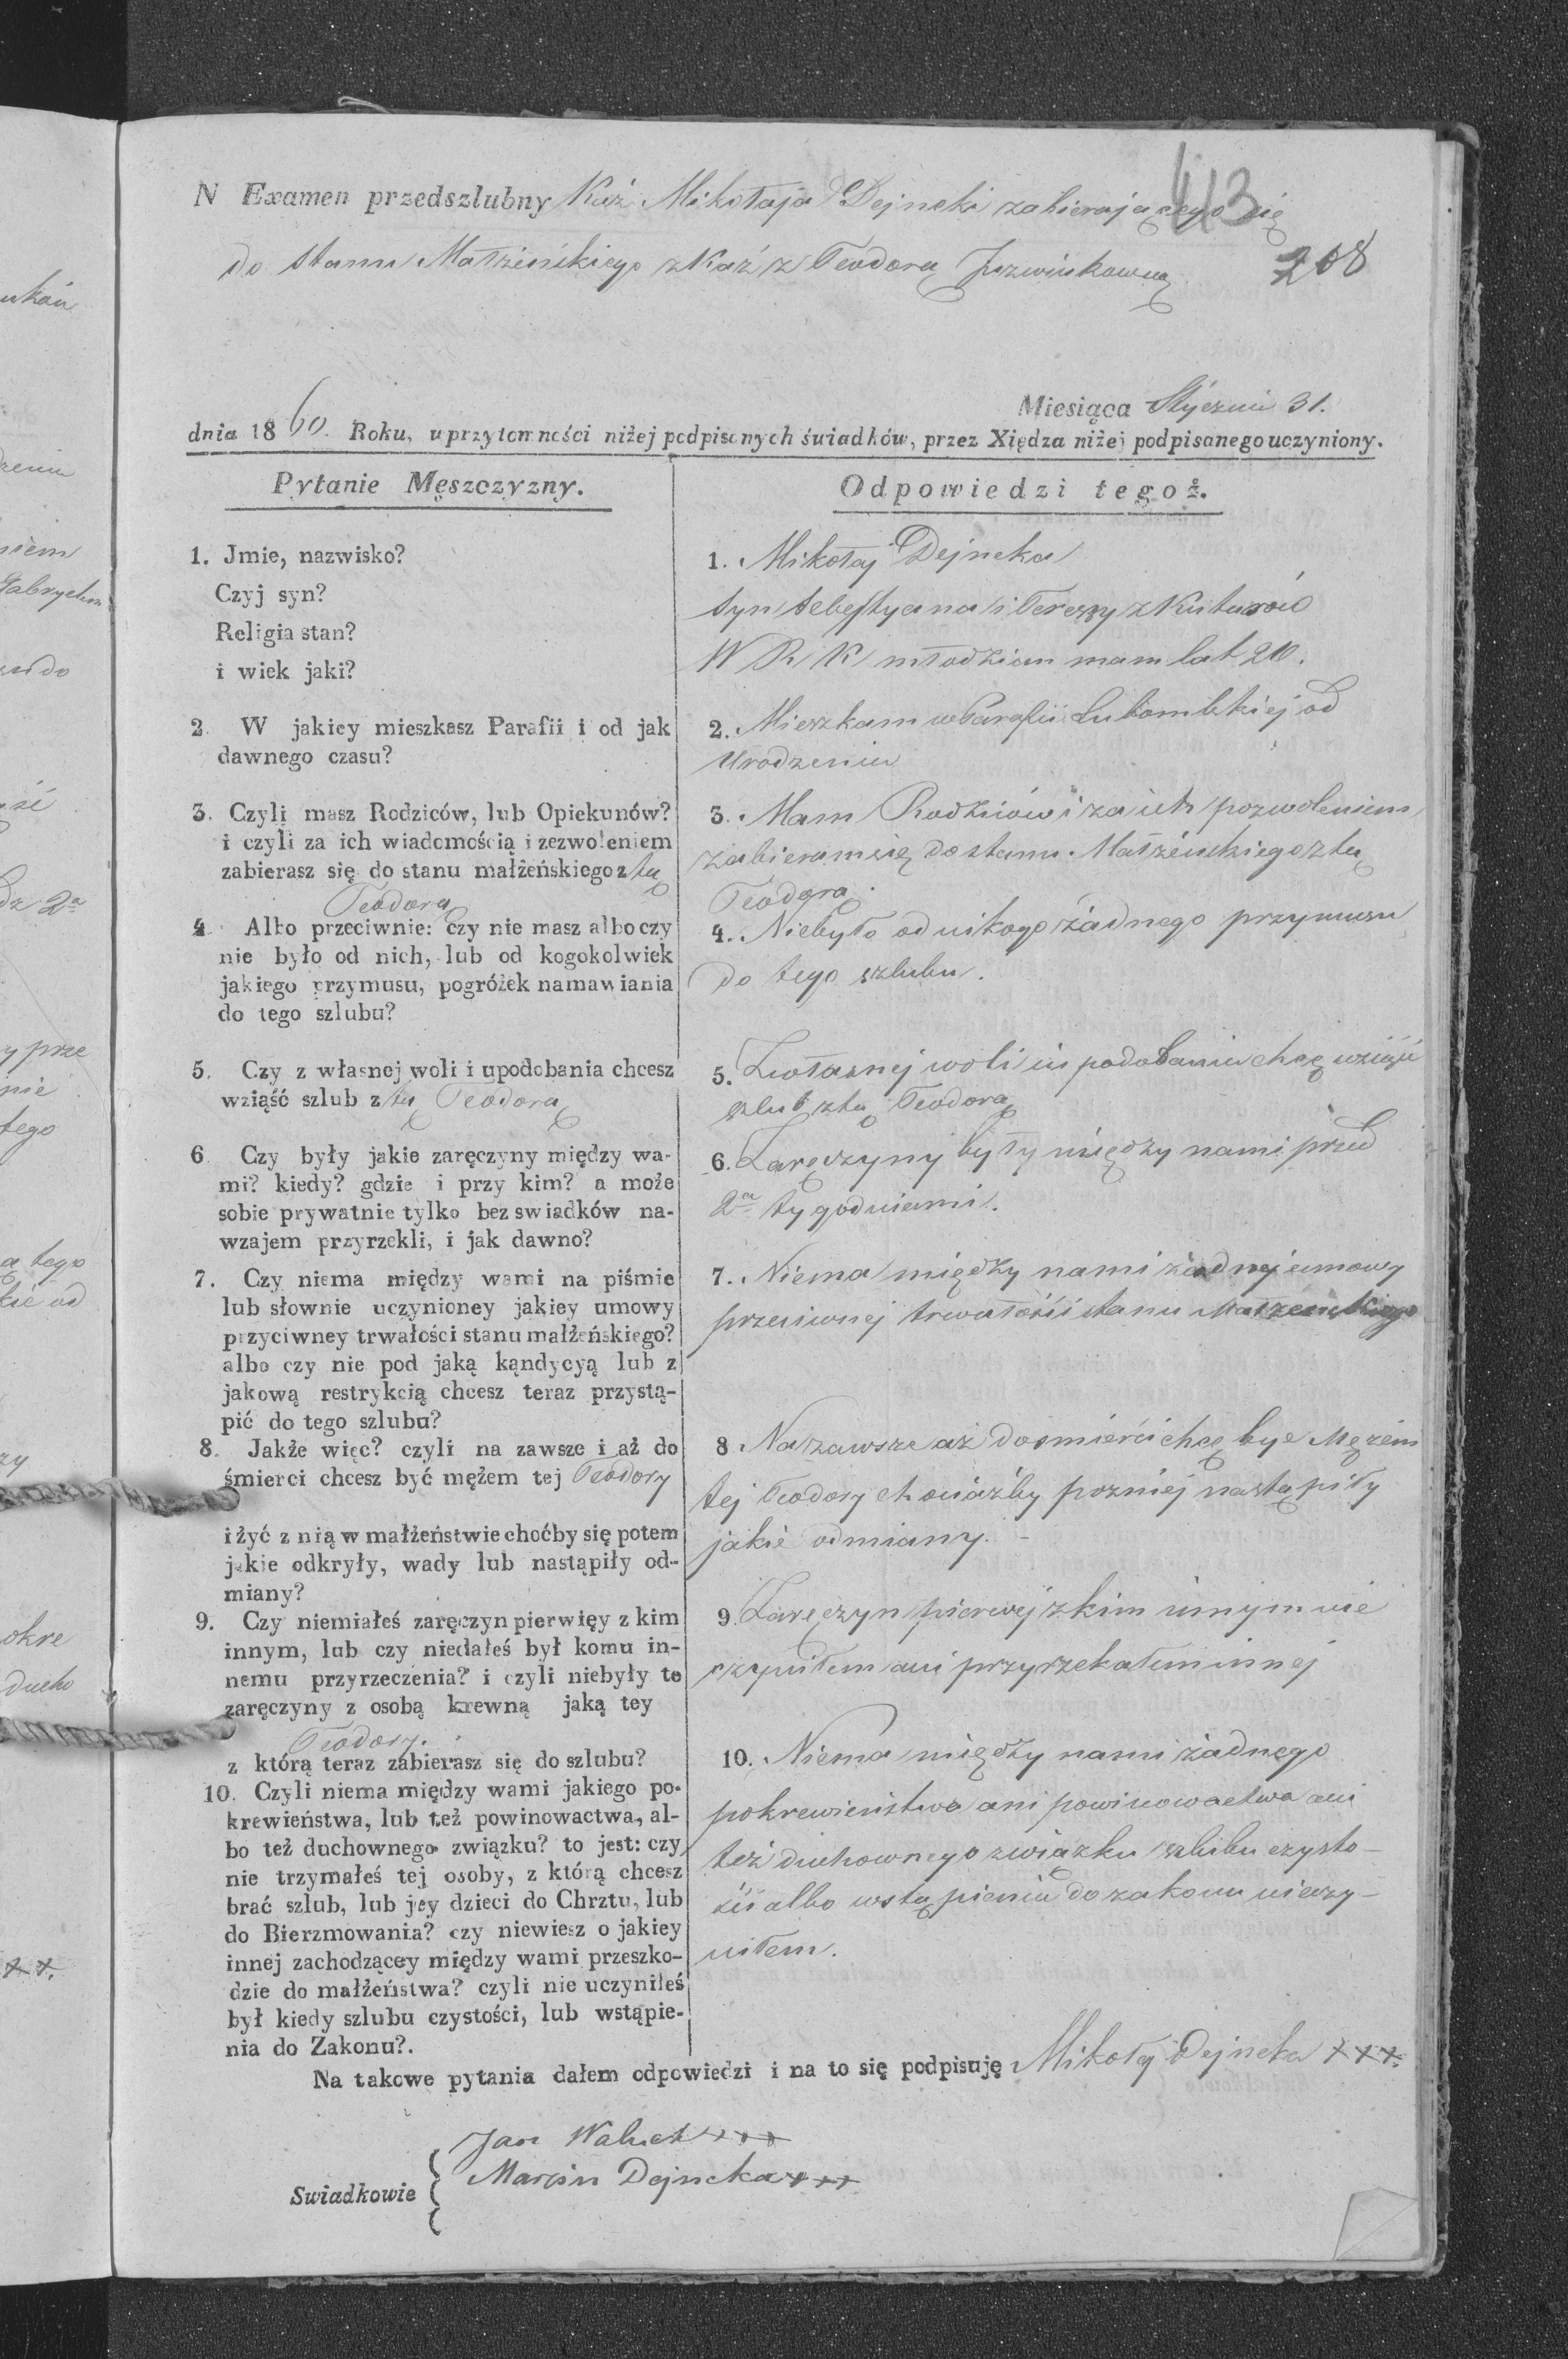 413
N Examen przedszlubny Kaź Mikołaja Dejneki zabierającego się
do stanu Małżeńskiego z Kaź z Teodorą Juzwiukowną 208
Miesiąca Stycznia 31.
dnia 1860. Roku, w przytomności niżej podpisanych świadków, przez Xiędza niżej podpisanego uczyniony.
Pytanie Męszczyzny.
1. Jmie, nazwisko?
Czyj syn?
Religia stan?
i wiek jaki?
2. W jakiey mieszkasz Parafii i od jak
dawnego czasu?
3. Czyli masz Rodziców, lub Opiekunów?
i czyli za ich wiadomością i zezwoleniem
zabierasz się do stanu małżeńskiego z tą
Teodorą
4. Albo przeciwnie: czy nie masz albo czy
nie było od nich, lub od kogokolwiek
jakiego przymusu, pogróżek namawiania
do tego szlubu?
5. Czy z własnej woli i upodobania chcesz
wziąść szlub z tą Teodorą
6. Czy były jakie zaręczyny między wa-
mi? kiedy? gdzie i przy kim? a może
sobie prywatnie tylko bez swiadków na-
wzajem przyrzekli, i jak dawno?
7. Czy niema między wami na piśmie
lub słownie uczynioney jakiey umowy
przyciwney trwałości stanu małżeńskiego?
albo czy nie pod jaką kąndycyą lub z
jakową restrykcią chcesz teraz przystą-
pić do tego szlubu?
8. Jakże więc? czyli na zawsze i aż do
śmierci chcesz być mężem tej Teodory
i żyć z nią w małżeństwie choćby się potem
jakie odkryły, wady lub nastąpiły od-
miany?
9. Czy niemiałeś zaręczyn pierwięy z kim
innym, lub czy niedałeś był komu in-
nemu przyrzeczenia? i czyli niebyły te
zaręczyny z osobą krewną jaką tey
Teodory.
z którą teraz zabierasz się do szlubu?
10. Czyli niema między wami jakiego po-
krewieństwa, lub też powinowactwa, al-
bo też duchownego związku? to jest: czy
nie trzymałeś tej osoby, z którą chcesz
brać szlub, lub jey dzieci do Chrztu, lub
do Bierzmowania? czy niewiesz o jakiey
innej zachodzącey między wami przeszko-
dzie do małżeństwa? czyli nie uczyniłeś
był kiedy szlubu czystości, lub wstąpie-
nia do Zakonu?.
Odpowiedzi tegoż.
1. Mikołaj Dejneka
syn Sebestyana i Teressy z
W R K młodzian mam lat
2. Mieszkam w Parafii Lubomlskiej od
Urodzenia
3. Mam Rodziców i za ich pozwoleniem
zabieram się do stanu Małżeńskiego z tą
Teodorą.
4. Niebyło od nikogo żadnego przymusu
do tego szlubu.
5. Z własnej woli i upodobania chcę wziąść
szlub z tą Teodorą
6. Zaręczyny były między nami przed
2a tygodniami.
7. Niema między nami żadnej umowy
przeciwnej trwałości stanu Małżeńskiego
8. Na zawsze aż do smierci chcę być Mężem
tej Teodory chociażby pozniej nastąpiły
jakie odmiany. -
9. Zaręczyn pierwej z kim innym nie
czyniłem ani przyrzekałem innej
10. Niema między nami żadnego
pokrewieństwa ani powinowactwa ani
też duchownego związku szlubu czysto-
ści albo wstąpienia do zakonu nieczy-
niłem.
Na takowe pytania dałem odpowiedzi i na to się podpisuję Mikołaj Dejneka +++
Swiadkowie
Jan Waluch +++
Marcin Dejneka +++